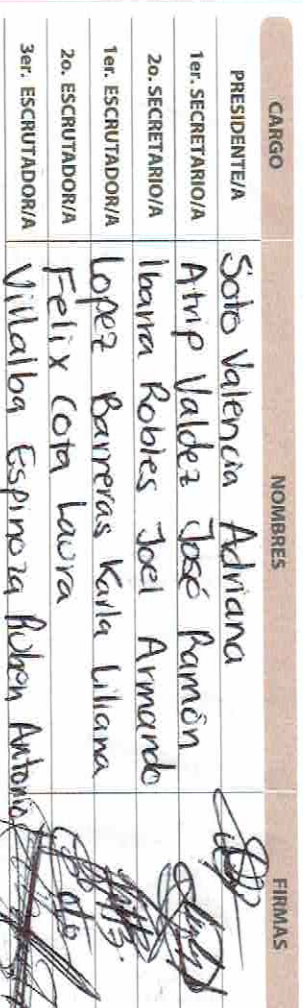 CARGO NOMBRES FIRMAS
PRESIDENTE/A Soto Valencia Adriana
1er. SECRETARIO/A Atrip Valdez José Ramón
2o. SECRETARIO/A Ibarra Robles Joel Armando
1er. ESCRUTADOR/A Lopez Barreras Karla Liliana
2o. ESCRUTADOR/A Felix Cota Laura
3er. ESCRUTADOR/A Villalba Espinoza Ruben Antonio